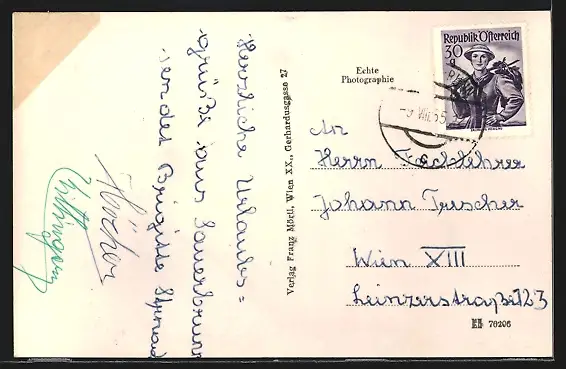 Herzliche Urlaubs=
grüße aus Sauerbrunn
sendet Brigitte
Verlag Franz Mörtl, Wien XX., Gerhardusgasse 27
Echte
Photographie
Republik Österreich
30
g
An
Herrn Fachlehrer
Johann Trescher
Wien XIII
Leinzerstraße 123
76206